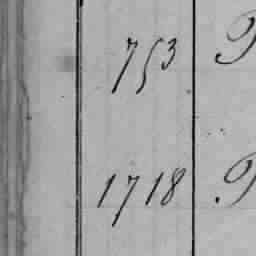 753
1718